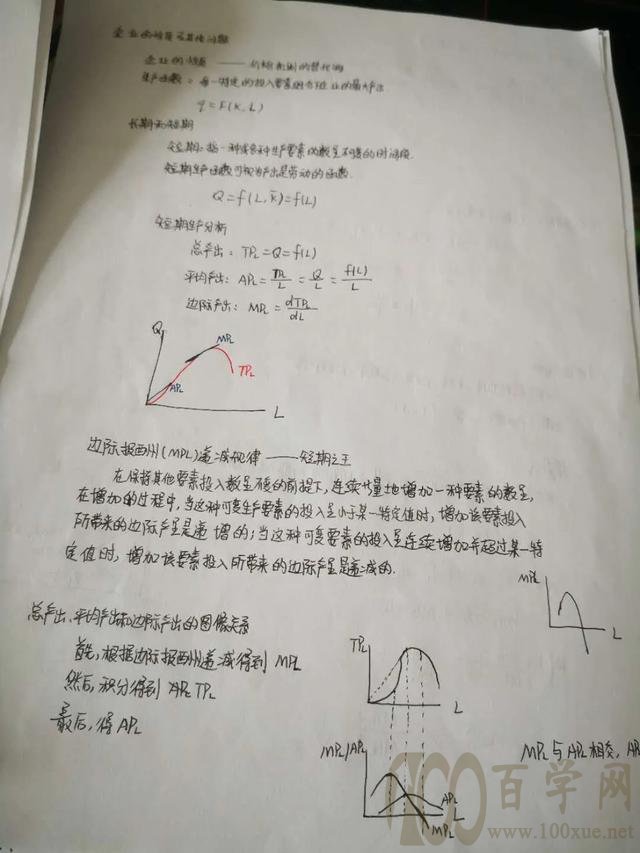 企业的性质及其他问题
企业的性质 —— 价格机制的替代物
生产函数：每一特定的投入要素组合下企业的最大产出
q=F(K,L)
长期和短期
短期：指一种或多种生产要素的数量不可变的时间段.
短期生产函数可视为产出是劳动的函数.
Q=f(L,K̄)=f(L)
短期生产分析
总产出：TPL=Q=f(L)
平均产出：APL=TPL/L=Q/L=f(L)/L
边际产出：MPL=dTPL/dL
Q
MPL
TPL
APL
L
边际报酬(MPL)递减规律 ——短期之王
在保持其他要素投入数量不变的前提下,连续等量地增加一种要素的数量,
在增加的过程中,当这种可变生产要素的投入量小于某一特定值时,增加该要素投入
所带来的边际产量是递增的;当这种可变要素的投入量连续增加并超过某一特
定值时,增加该要素投入所带来的边际产量是递减的.
MPL
L
总产出、平均产出和边际产出的图像关系
首先,根据边际报酬递减得到 MPL
然后,积分得到 TPL
最后,得APL
TPL
L
MPL/APL
APL
MPL
L
MPL与APL相交, AP
100 百学网
www.100xue.net